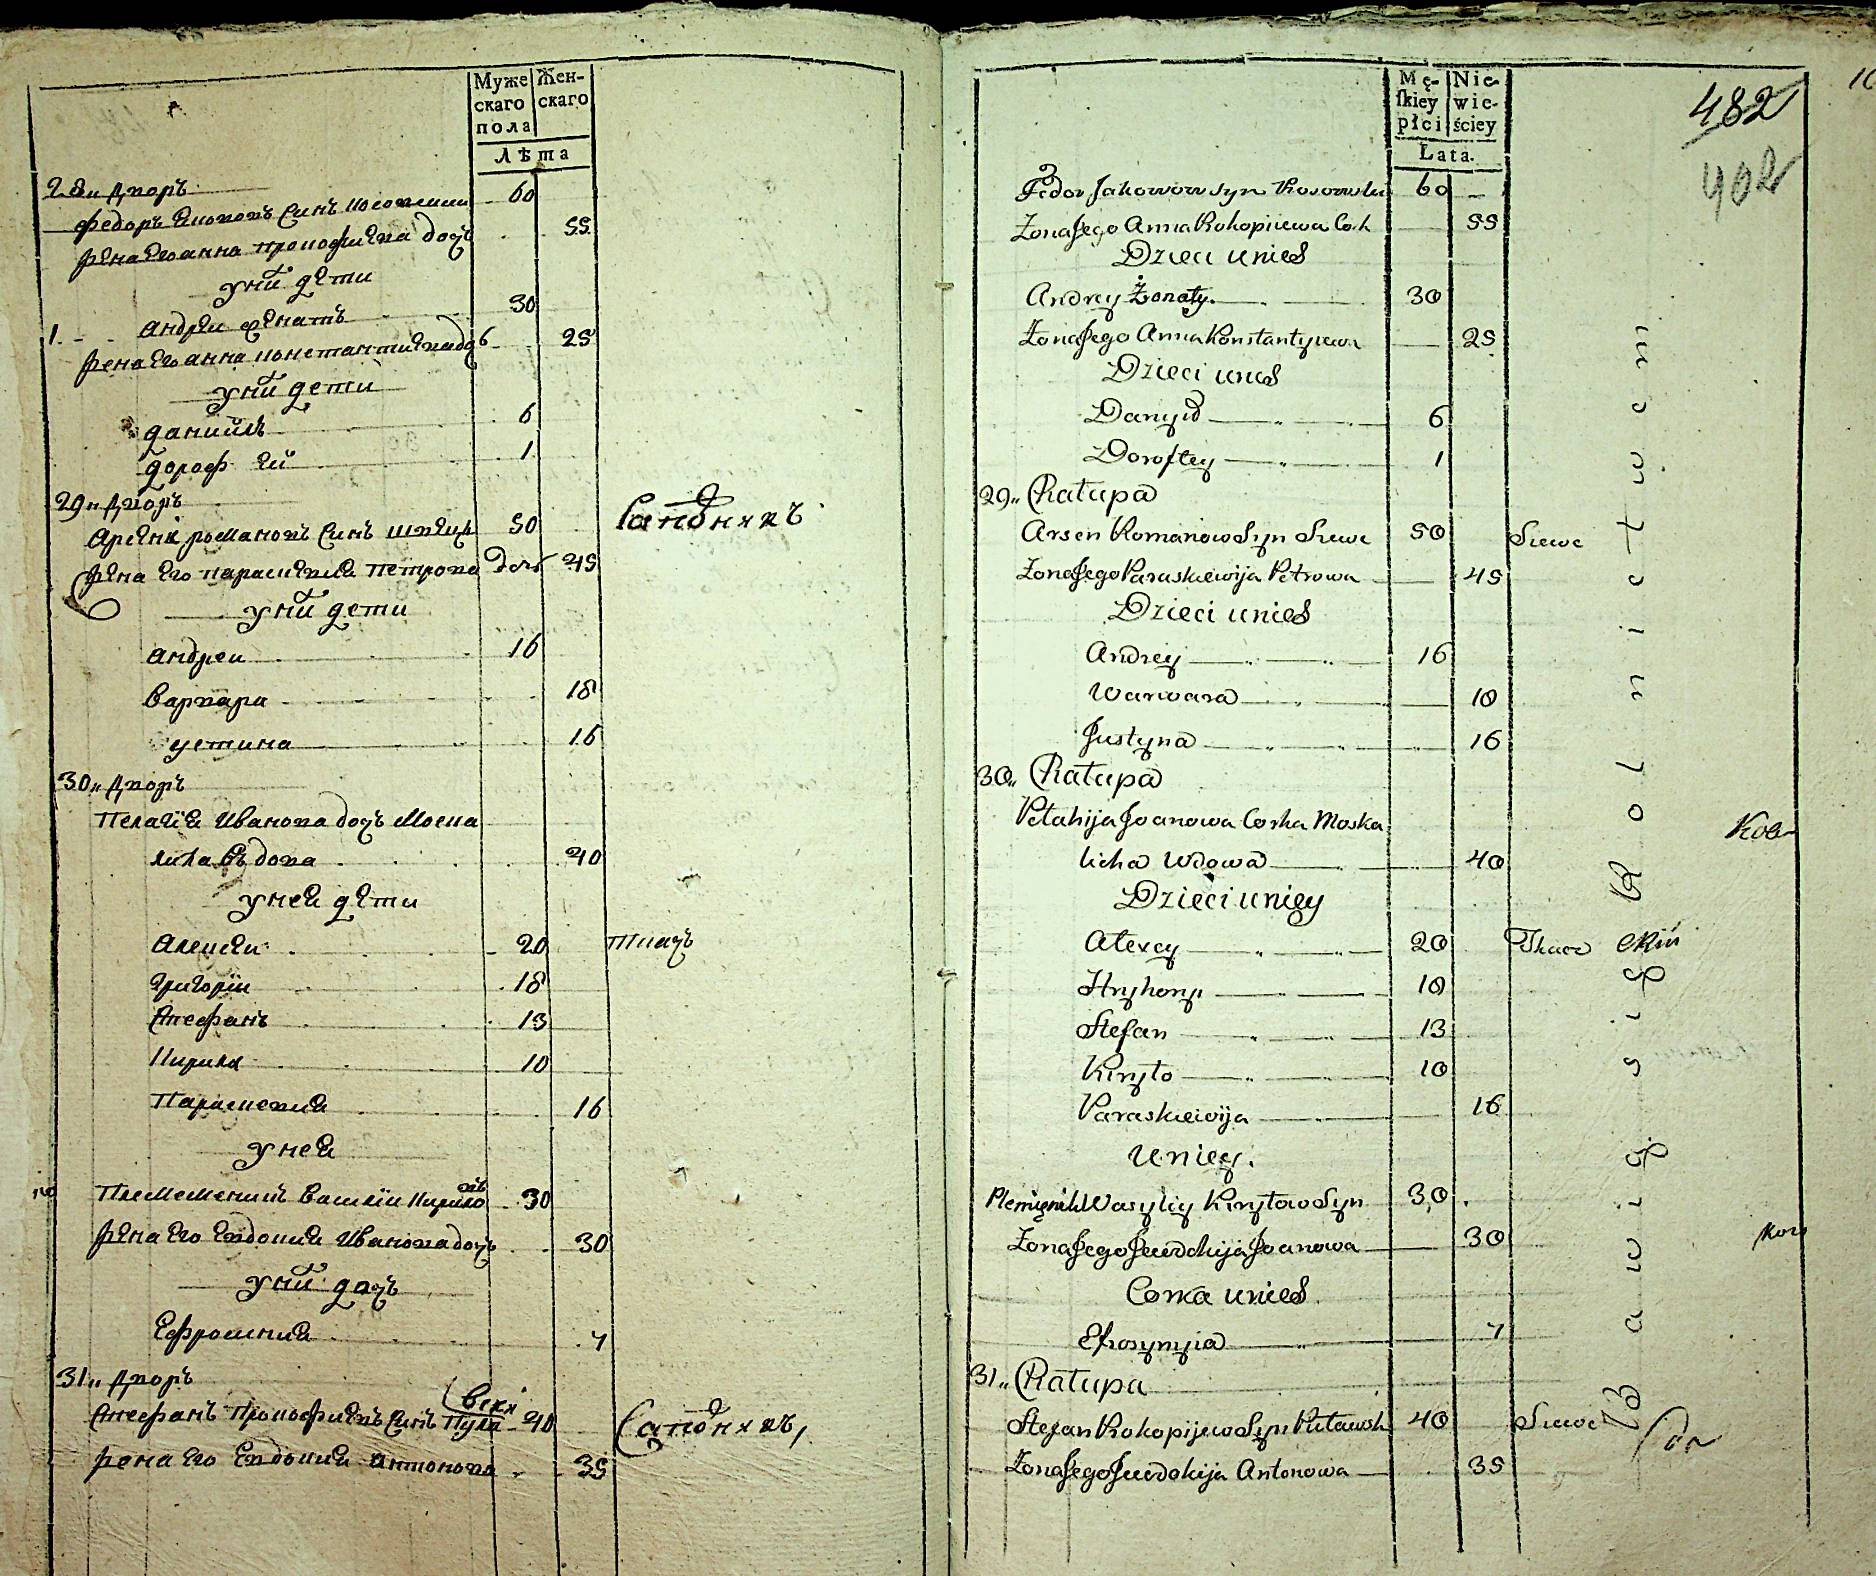 Муже скаго пола
Жен- скаго
Лѣта
28 „ Дворъ
Федоръ Якововъ синъ 60
жена его анна Прокофиева доч 55
у ний дети
1. андреи женатъ 30
жена его анна константиевадоч 25
у ний дети
даниилъ 6
дорофей 1
29 „ Дворъ
Арсені романовъ синъ швецъ 50 Сапожникъ
жена его параскевиѧ Петрова доч 45
у ний дети
андреи 16
варвара 18
устина 16
30 „ Дворъ
Пелагіѧ Иванова дочъ Моска
лиха вдова 40
у неѧ дети
Алексѣи 20 ткачъ
григоріи 18
Стефанъ 13
Кирило 10
Параскевиѧ 16
у неѧ
Племеникъ василіи Кириловъ 30
жена его Евдокиѧ Иванова дочъ 30
у ний дочъ
Ефросиниѧ 7
31 „ Дворъ
Стефанъ Прокофиевъ синъ Пулавски 40 Сапожникъ,
жена его Евдокиѧ антонова 35
Mę- skiey płci
Nie- wie- ściey
Lata.
482
402
Fedor Jakowow syn Kosowski 60
Żona Jego Anna Prokopiiewa Cork 55
Dzieci u nich
Andrey Żonaty 30
Żona Jego Anna Konstantyiewa 25
Dzieci u nich
Danyło 6
Doroftey 1
29 „ Chałupa
Arsen Romanow Syn Szewc 50 Szewc
Żona Jego Paraskiewija Petrowa 45
Dzieci u nich
Andrey 16
Warwara 18
Justyna 16
30 „ Chałupa
Pelahija Joanowa Corka Moska
licha Wdowa 40
Dzieci u niey
Alexey 20 Tkacz
Hryhory 18
Stefan 13
Kiryło 10
Paraskiewija 16
u niey.
Plemięnik Wasyliy Kiryłow Syn 30
Żona Jego Jewdokija Joanowa 30
Corka u nich
Efrosynyia 7
31 „ Chałupa
Stefan Prokopijew Syn Puławski 40 Szewc
Żona Jego Jewdokija Antonowa 35
Bawią się Rolnictwem